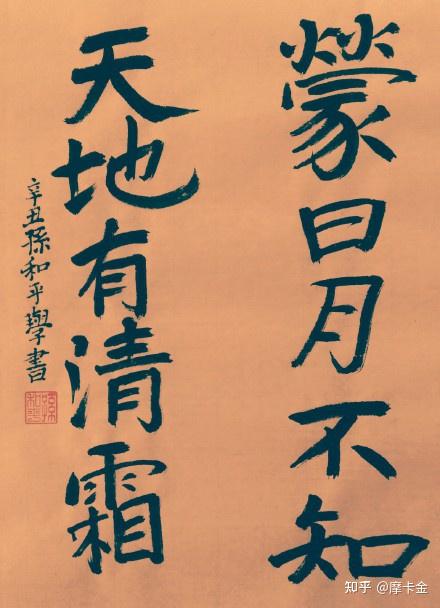 蒙日月不知
天地有清霜
辛丑孫和平學書
孫和平
知乎 @摩卡金